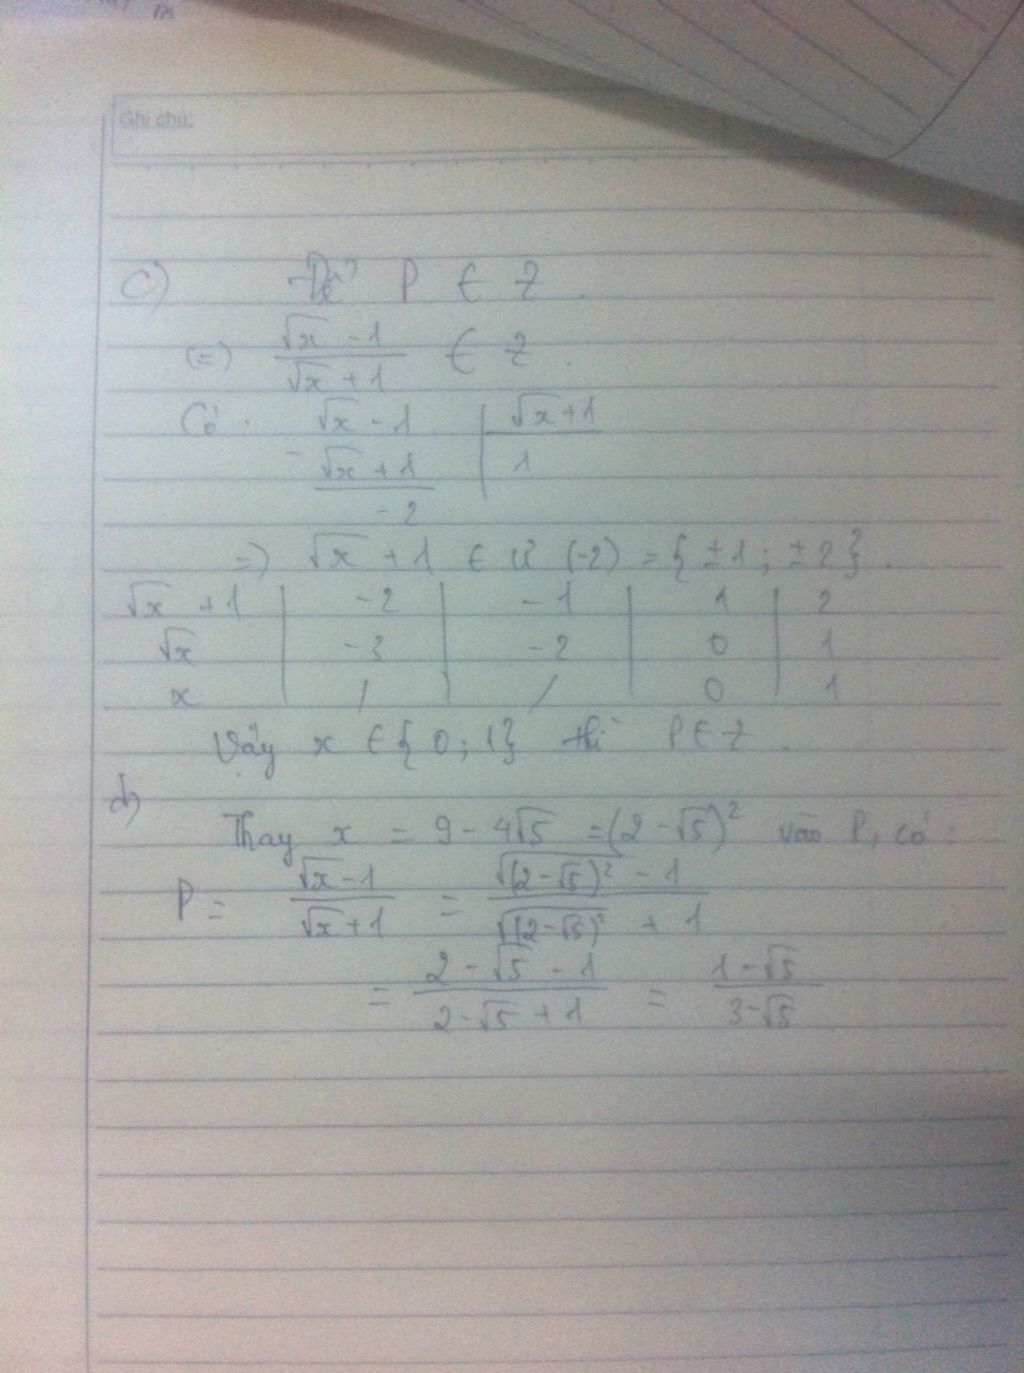 Ghi chú:
c) Để P ∈ Z.
(=) (√x - 1)/(√x + 1) ∈ Z.
Có: √x - 1 | √x + 1
- √x + 1 | 1
-2
=) √x + 1 ∈ Ư (-2) = {±1; ±2}.
√x + 1 | -2 | -1 | 1 | 2
√x | -3 | -2 | 0 | 1
x | / | / | 0 | 1
Vậy x ∈ {0; 1} thì P ∈ Z.
d)
Thay x = 9 - 4√5 = (2 - √5)² vào P, có:
P = (√x - 1)/(√x + 1) = (√(2 - √5)² - 1)/(√(2 - √5)² + 1)
= (2 - √5 - 1)/(2 - √5 + 1) = (1 - √5)/(3 - √5)